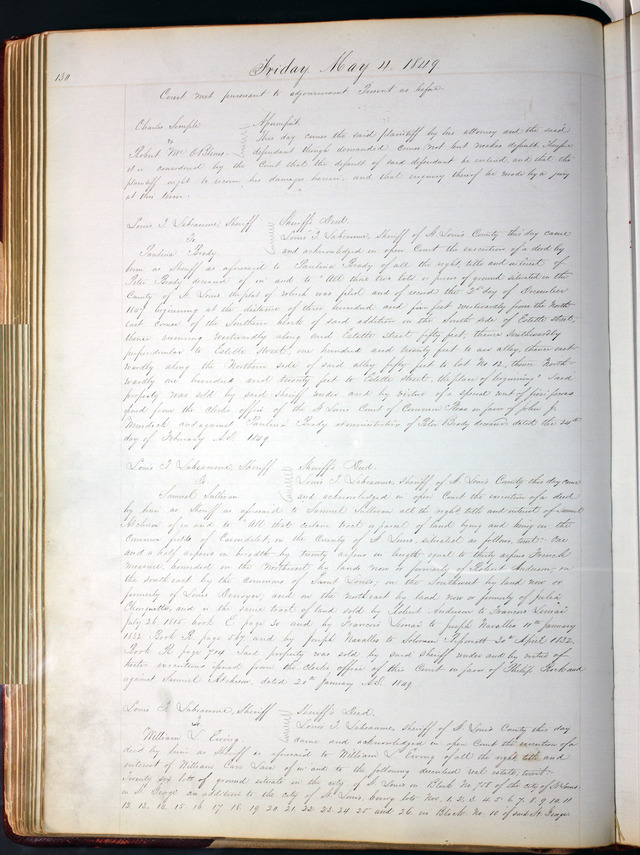 130
Friday May 4 1849
Court met pursuant to adjournment Present as before
Charles Semple } Assumpsit
vs This day comes the said plaintiff by his attorney and the said
Robert Mc defendant though demanded comes not but makes default. Therefore
it is considered by the Court that the default of said defendant be entered, and that the
plaintiff ought to recover his damages herein, and that enquiry thereof be made by a jury
at this term.
Louis T. Labeaume, Sheriff } Sheriff's Deed.
To Louis T. Labeaume, Sheriff of St. Louis County this day came
Paulina Brady and acknowledged in open Court the execution of a deed by
him as Sheriff as aforesaid to Paulina Brady of all the right, title and interest of
Peter Brady deceased of in and to "All those two lots or pieces of ground situated in the
County of St. Louis the plat of which was filed and of record the 3d day of December
1847 beginning at the distance of three hundred and five feet westwardly from the North
east corner of the Southern block of said addition on the South side of Estelle Street,
thence running westwardly along said Estelle Street fifty feet, thence Southwardly
perpendicular to Estelle Street, one hundred and twenty feet to an alley, thence east-
wardly along the Northern side of said alley fifty feet to lot No 12, thence North-
wardly one hundred and twenty feet to Estelle Street, the place of beginning" Said
property was sold by said Sheriff under and by virtue of a special writ of fieri facias
issued from the clerks office of the St Louis Court of Common Pleas in favor of John J.
Murdoch and against Paulina Brady administratrix of Peter Brady deceased dated the 24th
day of February A.D. 1849
Louis T. Labeaume, Sheriff } Sheriff's Deed.
To Louis T. Labeaume, Sheriff of St. Louis County this day came
Samuel Sullivan and acknowledged in open Court the execution of a deed
by him as Sheriff as aforesaid to Samuel Sullivan all the right title and interest of Samuel
Atchison of in and to "All that certain tract or parcel of land lying and being in the
Common fields of Carondelet, in the County of St. Louis, situated as follows, to wit: One
and a half arpens in breadth by twenty arpens in length, equal to thirty arpens French
measure, bounded on the Northwest by lands now or formerly of Robert Anderson, on
the south east by the commons of Saint Louis, on the Southwest by land now or
formerly of Louis and on the north east by land now or formerly of Julia
and is the same tract of land sold by Robert Anderson to Francois Lemai
July 26 1815 book E page 30 and by Francois Lemai to Joseph Navalles 11th January
1832 Book R page 587 and by Joseph Navalles to Solomon 20th April 1832
Book R page 714 Said property was sold by said Sheriff under and by virtue of
executions issued from the clerks office of this Court in favor of Philip and
against Samuel Atchison, dated 20th January A.D. 1849
Louis T. Labeaume, Sheriff } Sheriff's Deed.
To Louis T. Labeaume, Sheriff of St. Louis County this day
William L. Ewing came and acknowledged in open Court the execution of a
deed by him as Sheriff as aforesaid to William L Ewing of all the right title and
interest of William Carr Lane of in and to the following described real estate, to wit:
Twenty six lots of ground situate in the city of St Louis in Block No 758 of the city of St Louis
in St. George an addition to the city of St Louis, being lots Nos. 1. 2. 3. 4. 5. 6. 7. 8. 9. 10. 11
12. 13. 14. 15 16 17 18 19 20. 21 22 23. 24 25 and 26 in Block No. 10 of said St. George